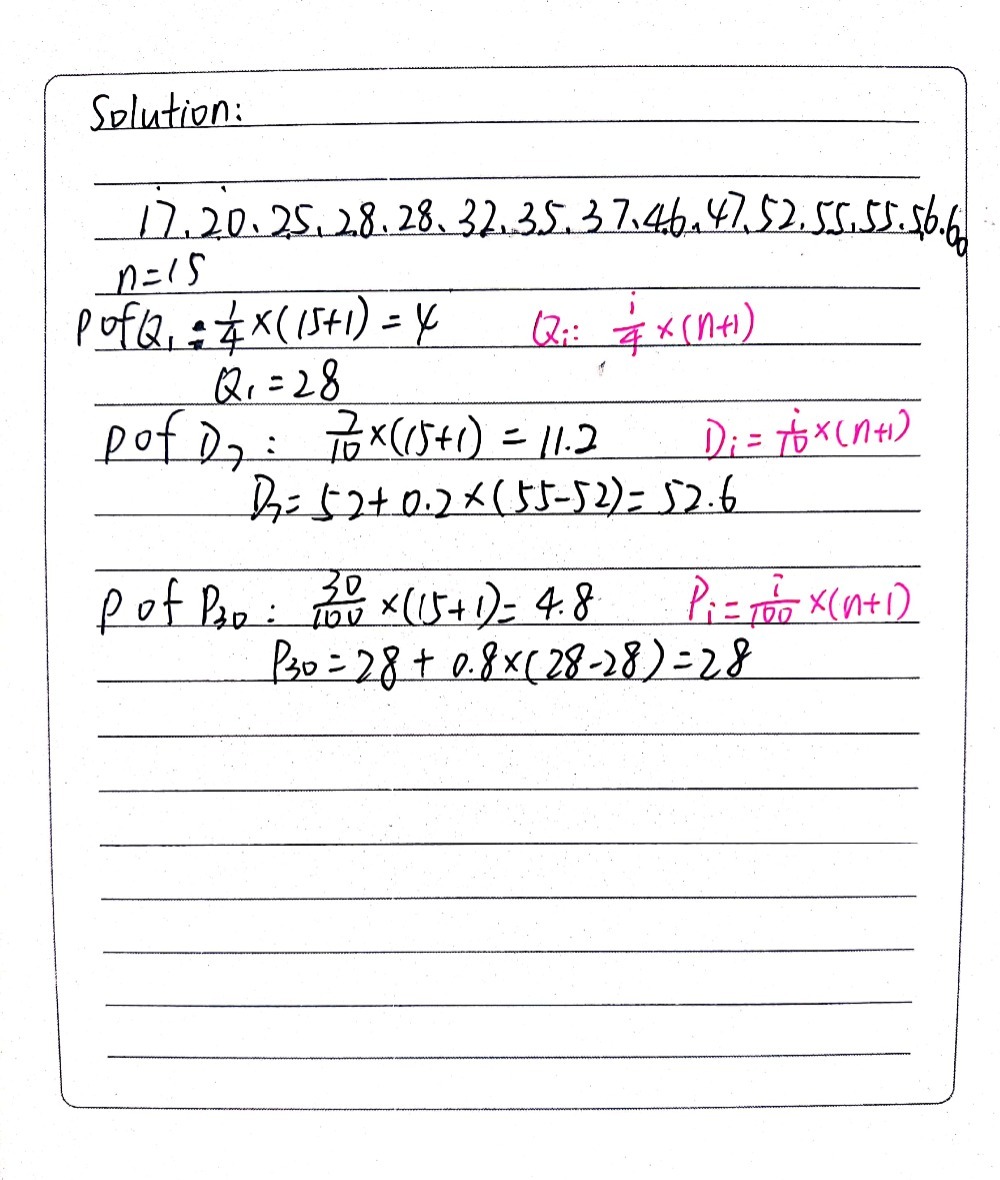 Solution:
17、20、25、28、28、32、35、37、46、47、52、55、55、56、60
n=15
P of Q₁: 1/4×(15+1)=4 Qᵢ: i/4×(n+1)
Q₁=28
P of D₇: 7/10×(15+1)=11.2 Dᵢ=i/10×(n+1)
D₇=52+0.2×(55-52)=52.6
P of P₃₀: 30/100×(15+1)=4.8 Pᵢ=i/100×(n+1)
P₃₀=28+0.8×(28-28)=28